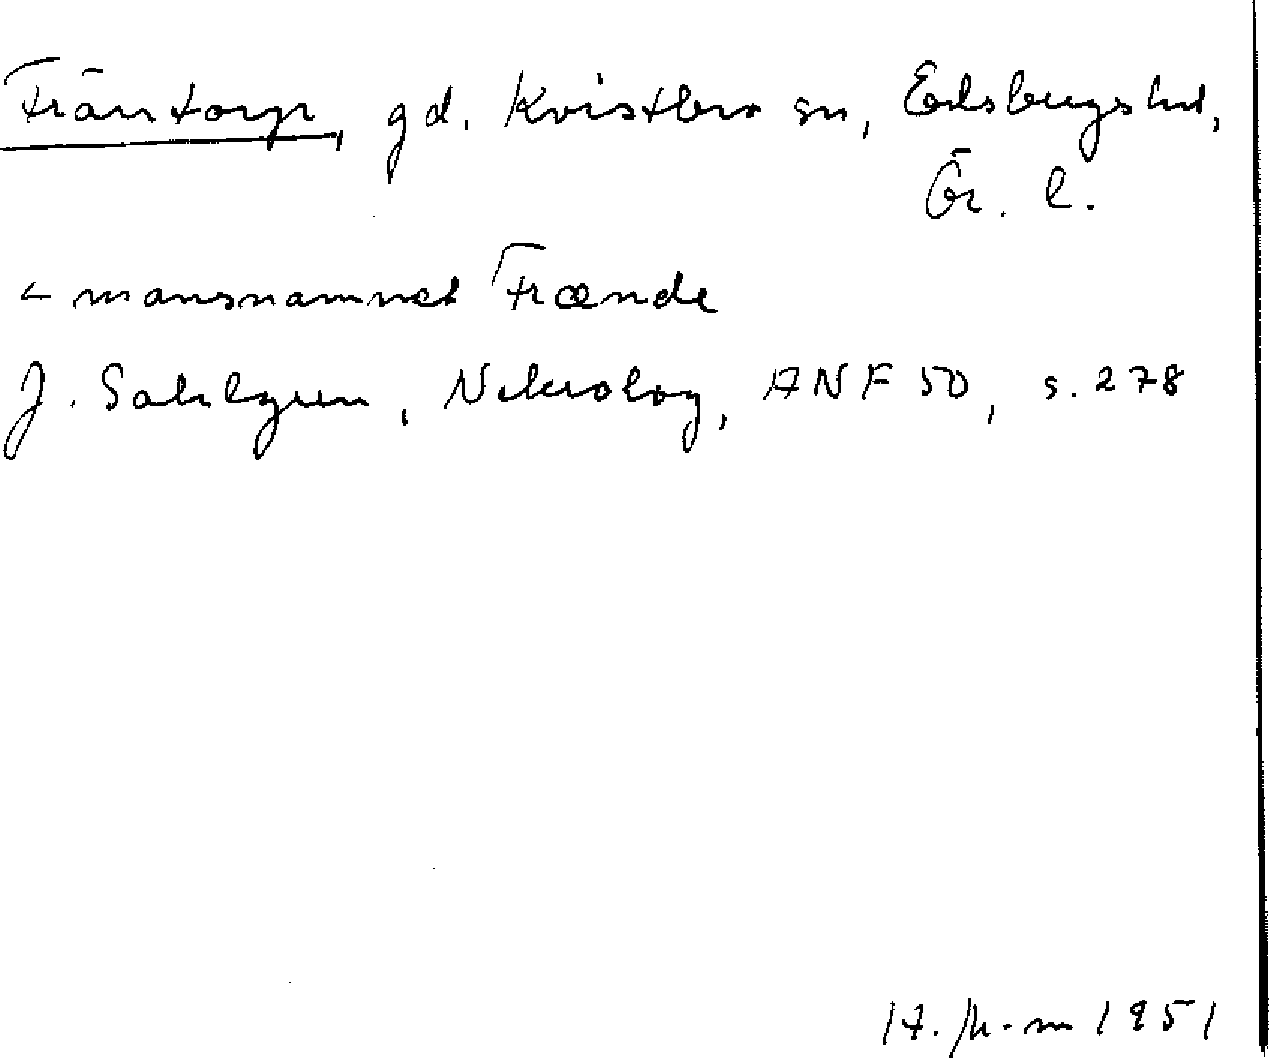 Fräntorp, gd. Kvistbro sn, Edsbergs hd,
Ör. l.
< mansnamnet Frænde
J. Sahlgren, Nekrolog, ANF 50, s. 278
1951